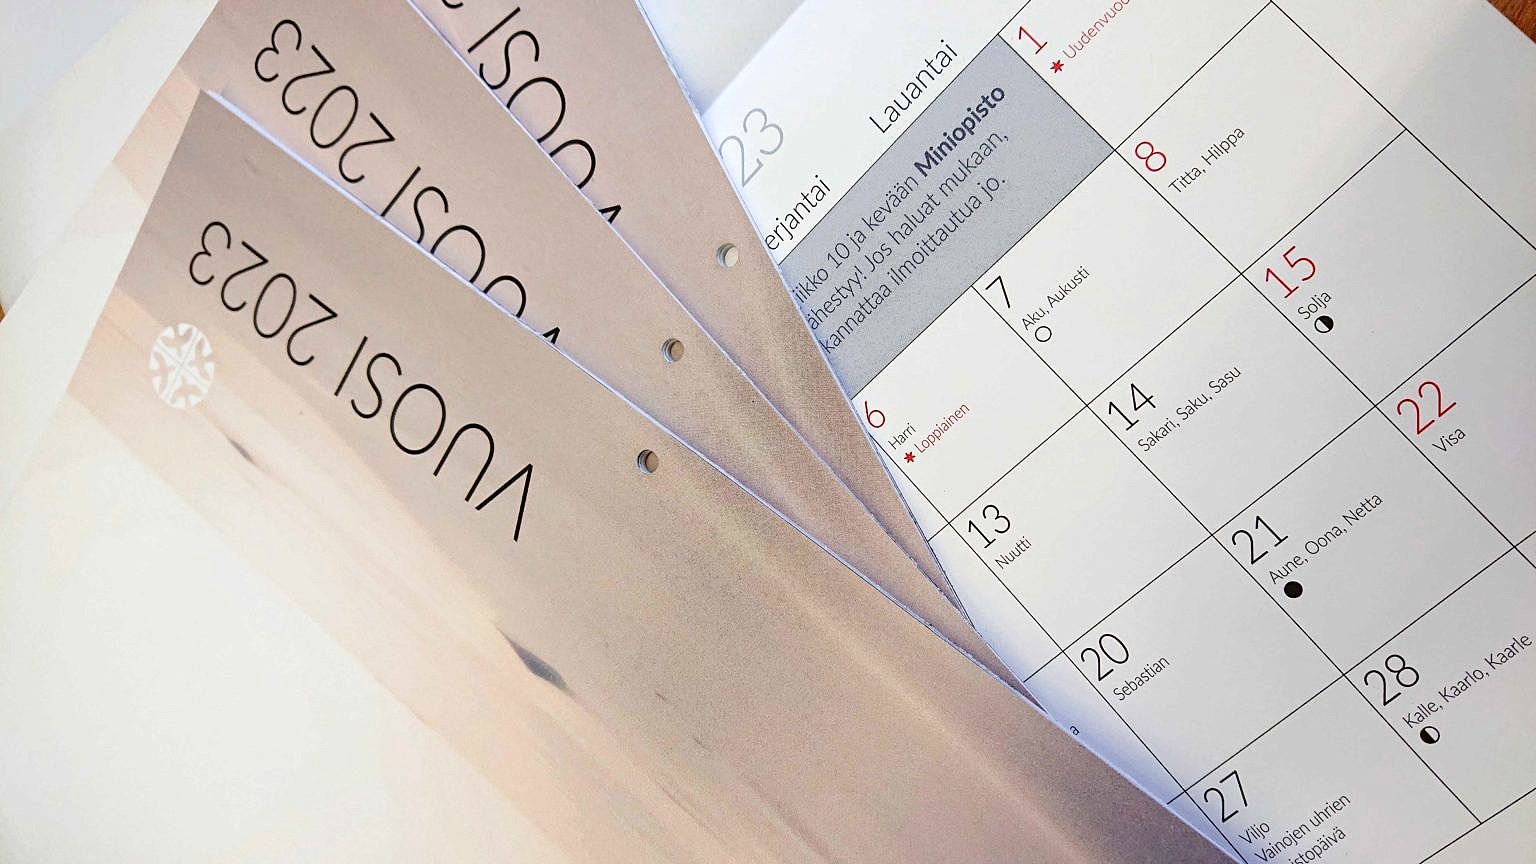 VUOSI 2023
VUOSI 2023
VUOSI
23
Lauantai
Miniopisto
10 ja kevään
Jos haluat mukaan,
kannattaa ilmoittautua jo.
1
8
Titta, Hilppa
7
Aku, Aukusti
15
Solja
6
Harri
Loppiainen
14
Sakari, Saku, Sasu
22
Visa
13
Nuutti
21
Aune, Oona, Netta
20
Sebastian
28
Kalle, Kaarlo, Kaarle
27
Viljo
Vainojen uhrien